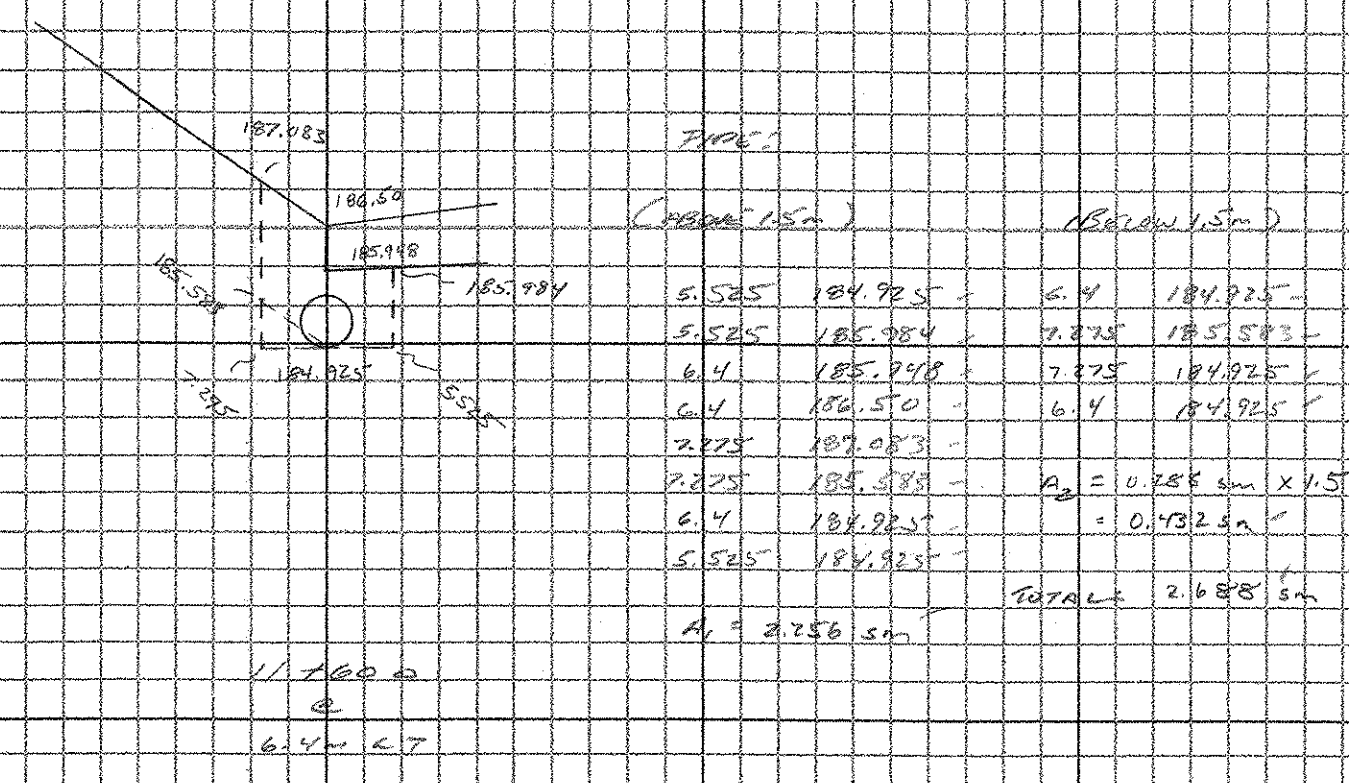 187.083
186.50
185.948
185.984
185.588
184.925
7.275
5.525
PIPE:
(ABOVE 1.5m)
5.525 184.925
5.525 185.984
6.4 185.948
6.4 186.50
7.275 187.083
7.275 185.588
6.4 184.925
5.525 184.925
A₁ = 2.256 sm
(BELOW 1.5m)
6.4 184.925
7.275 185.583
7.275 184.925
6.4 184.925
A₂ = 0.288 sm x 1.5
= 0.432 sm
TOTAL = 2.688 sm
11+600
@
6.4m LT